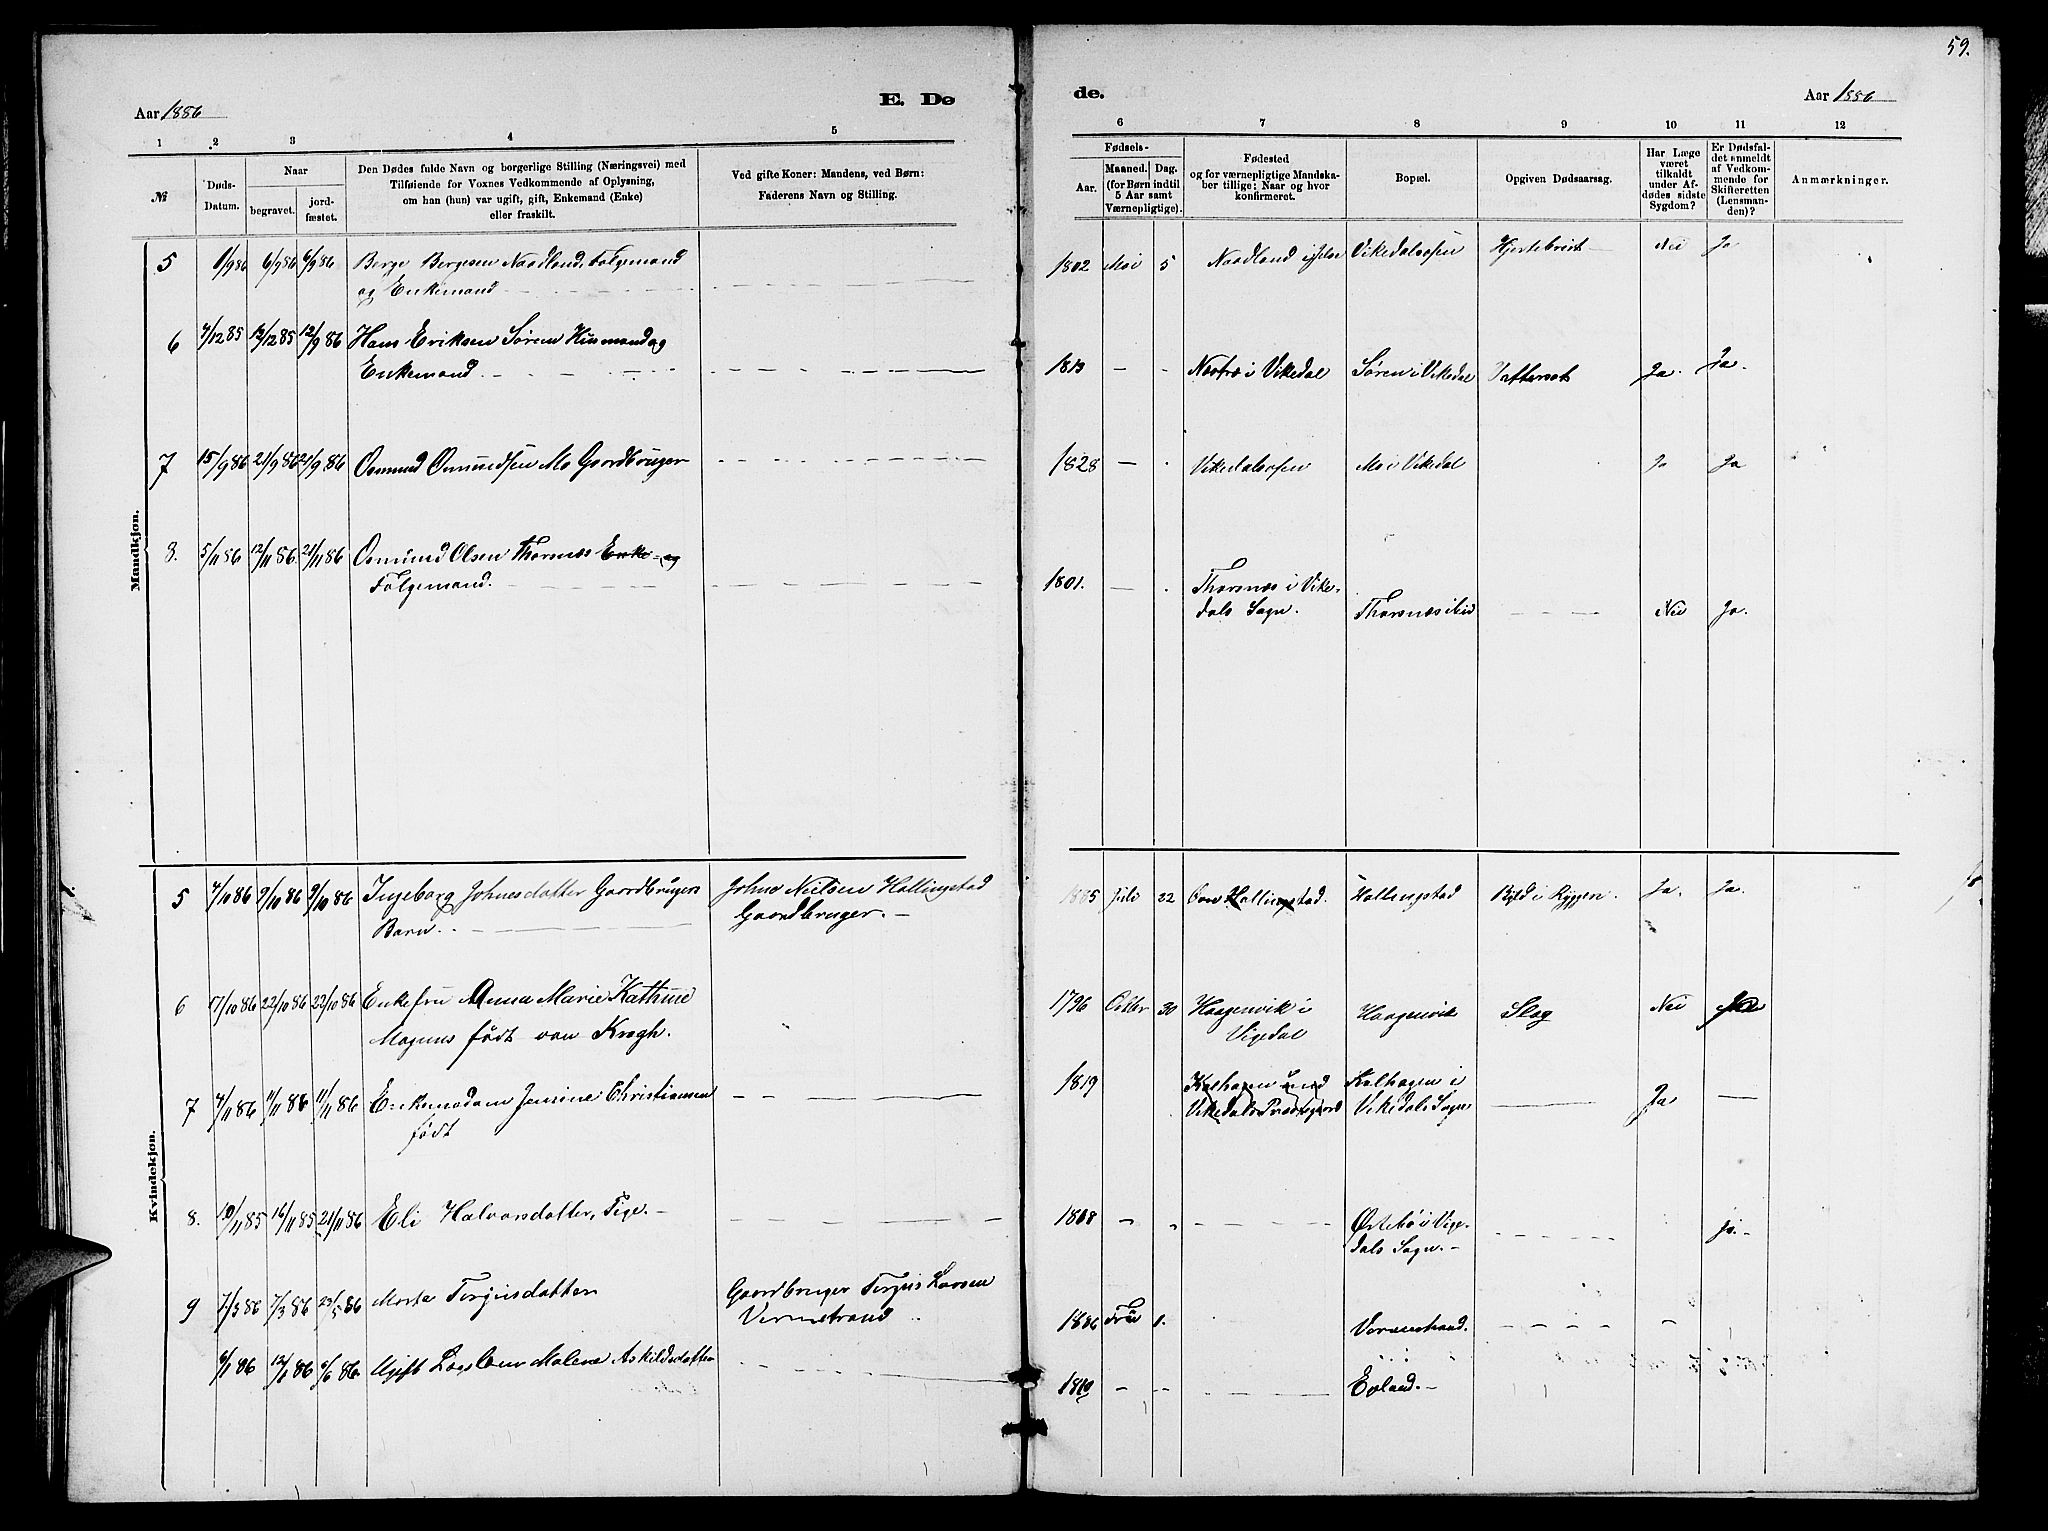 59.
Aar 1886
E. Dø
de.
Aar 1886
1 2 3 4 5
6 7 8 9 10 11 12
№
Døds-
Datum.
Naar
begravet.
jord-
fæstet.
Den Dødes fulde Navn og borgerlige Stilling (Næringsvei) med
Tilføiende for Voxnes Vedkommende af Oplysning,
om han (hun) var ugift, gift, Enkemand (Enke)
eller fraskilt.
Ved gifte Koner: Mandens, ved Børn:
Faderens Navn og Stilling.
Fødsels-
Aar.
Maaned. Dag.
(for Børn indtil
5 Aar samt
Værnepligtige).
Fødested
og for værnepligtige Mandska-
ber tillige: Naar og hvor
konfirmeret.
Bopæl.
Opgiven Dødsaarsag.
Har Læge
været
tilkaldt
under Af-
dødes sidste
Sygdom?
Er Dødsfal-
det anmeldt
af Vedkom-
mende for
Skifteretten
(Lensman-
den)?
Anmærkninger.
Mandkjøn.
5 1/9 86 6/9 86 6/9 86 Berge Bergesen Naadland, Følgemand
og Enkemand
1802 Mai 5 Naadland i Jelse Vikedalsosen Hjertebrøst Nei Ja
6 4/12 85 12/12 85 12/9 86 Hans Eriksen Søren Husmand og
Enkemand.
1813 Næstrø i Vikedal Søren i Vikedal Vattersot Ja. Ja.
7 15/9 86 21/9 86 21/9 86 Osmund Osmundsen Mo Gaardbruger
1828 Vikedalsosen Mo i Vikedal Ja Ja
8. 5/11 86 12/11 86. 21/11 86 Osmund Olsen Thornæs Enke- og
Følgemand.
1801. Thornæs i Vike-
dals Sogn. Thornæs Nei Ja.
Kvindekjøn.
5 4/10 86 9/10 86 9/10 86 Ingeborg Johnesdatter Gaardbrugers
Barn.
Johne Nielsen Hallingstad
Gaardbruger.
1885 Juli 22 Hallingstad. Hallingstad Byld i Ryggen. Ja. Ja.
6 17/10 86 22/10 86 22/10 86 Enkefru Anna Marie Kathrine
Magnus født von Krogh.
1796 Octbr 30 Haagenvik i
Vigedal Haagenvik Slag Nei
7 4/11 86 11/11 86 11/11 86 Enkemadam Jensine Christiansen
født
1819 Kalhagen und
Vikedals Præstegaard Kalhagen i
Vikedals Sogn Ja
8. 10/11 85 16/11 85 21/11 86 Eli Halvorsdatter, Pige.
1808 Østebø i Vige-
dals Sogn. Ja.
9 7/3 86 7/3 86 23/5 86 Marta Terjusdatter
Gaardbruger Terjus Larsen
Vormestrand
1886 1. Vormestrand.
6/1 86 12/1 86 6/6 86. Ugift Malene Askildsdatter
1810 Øvland.